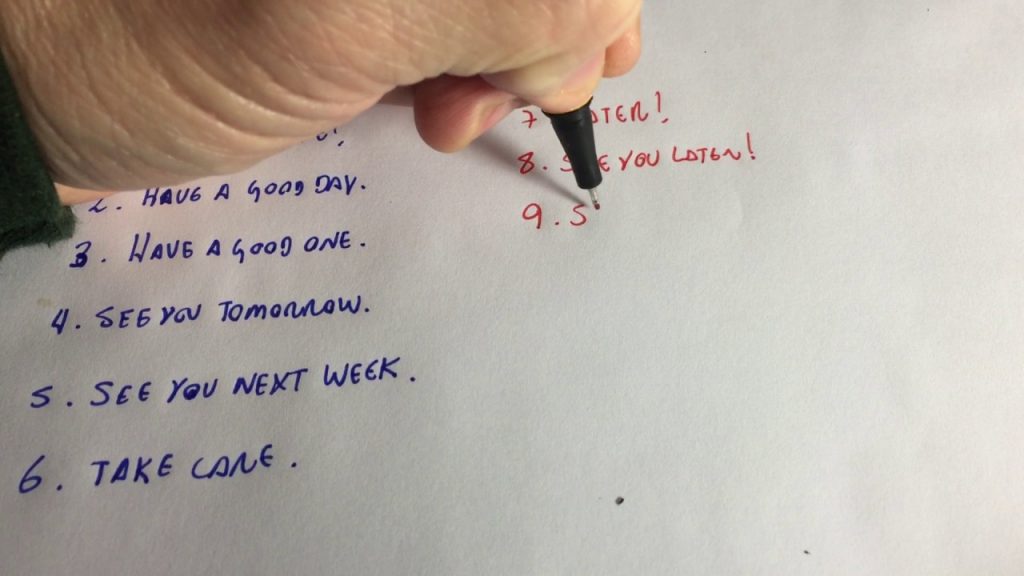 2. HAVE A GOOD DAY.
3. HAVE A GOOD ONE.
4. SEE YOU TOMORROW.
5. SEE YOU NEXT WEEK.
6. TAKE CARE.
7
8. SEE YOU LATER!
9. S